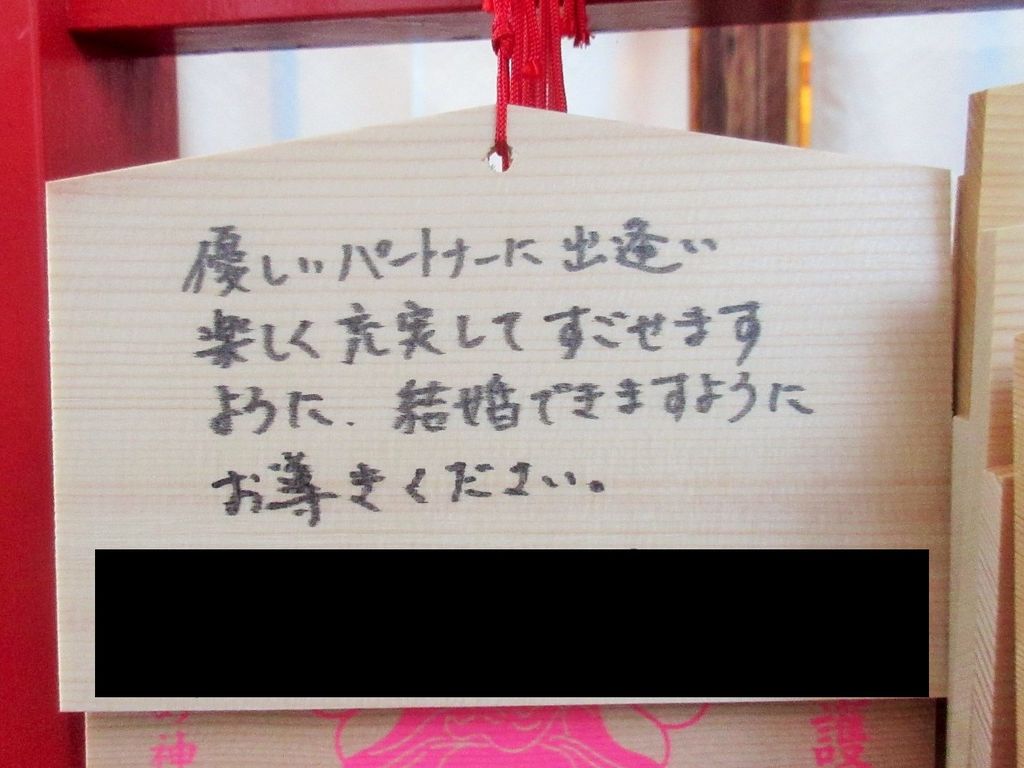 優しいパートナーに出逢い
楽しく充実してすごせます
ように、結婚できますように
お導きください。
神
護